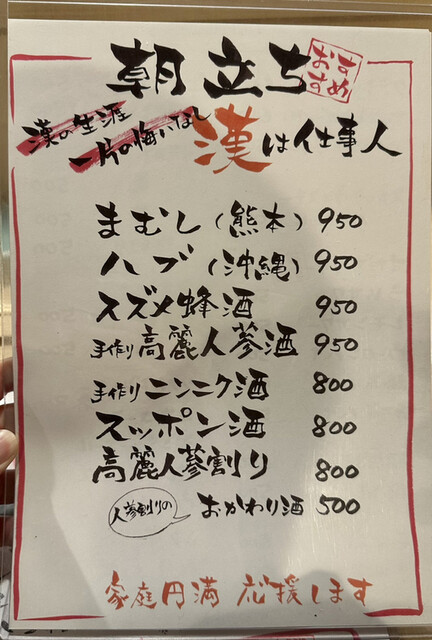 朝立ち
おすすめ
漢の生涯
一片の悔いなし
漢は仕事人
まむし(熊本) 950
ハブ(沖縄) 950
スズメ蜂酒 950
手作り高麗人参酒 950
手作りニンニク酒 800
スッポン酒 800
高麗人参割り 800
人参割りの おかわり酒 500
家庭円満 応援します